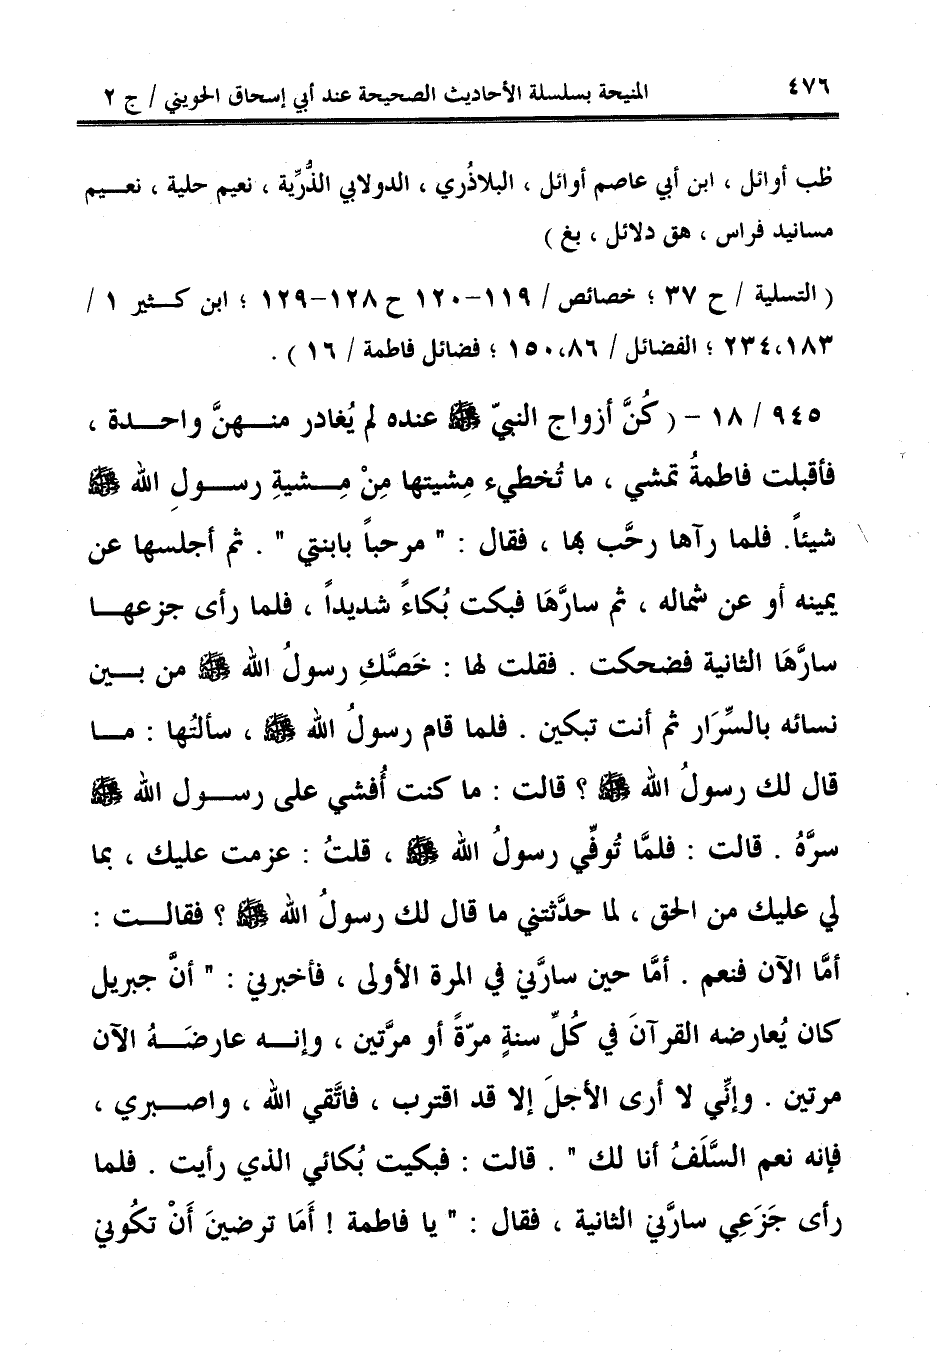 ٤٧٦
المنيحة بسلسلة الأحاديث الصحيحة عند أبي إسحاق الحويني / ج ٢
طب أوائل ، ابن أبي عاصم أوائل ، البلاذُري ، الدولابي الذُّرِّية ، نعيم حلية ، نعـــيم
مسانيد فراس ، هق دلائل ، بغ )
( التسلية / ح ٣٧ ؛ خصائص / ١١٩-١٢٠ ح ١٢٨-١٢٩ ؛ ابن كــثير ١ /
٢٣٤،١٨٣ ؛ الفضائل / ١٥٠،٨٦ ؛ فضائل فاطمة / ١٦ ) .
٩٤٥ / ١٨ - ( كُنَّ أزواج النبيّ ﷺ عنده لم يُغادر منــهنَّ واحــدة ،
فأقبلت فاطمةُ تمشي ، ما تُخطيء مِشيتها مِنْ مِــشيةِ رســولِ الله ﷺ
شيئاً. فلما رآها رحَّب بها ، فقال : " مرحباً بابنتي " . ثم أجلسها عن
يمينه أو عن شماله ، ثم سارَّهَا فبكت بُكاءً شديداً ، فلما رأى جزعهــا
سارَّهَا الثانية فضحكت . فقلت لها : خَصَّكِ رسولُ الله ﷺ من بــين
نسائه بالسِّرَار ثم أنت تبكين . فلما قام رسولُ الله ﷺ ، سألتُها : مــا
قال لك رسولُ الله ﷺ ؟ قالت : ما كنت أُفشي على رســول الله ﷺ
سرَّهُ . قالت : فلمَّا تُوفِّي رسولُ الله ﷺ ، قلتُ : عزمت عليك ، بما
لي عليك من الحق ، لما حدَّثتني ما قال لك رسولُ الله ﷺ ؟ فقالــت :
أمَّا الآن فنعم . أمَّا حين سارَّني في المرة الأولى ، فأخبرني : " أنَّ جبريل
كان يُعارضه القرآنَ في كُلِّ سنةٍ مرّةً أو مرَّتين ، وإنــه عارضَــهُ الآن
مرتين . وإنِّي لا أرى الأجلَ إلا قد اقترب ، فاتَّقي الله ، واصــبري ،
فإنه نعم السَّلَفُ أنا لك " . قالت : فبكيت بُكائي الذي رأيت . فلما
رأى جَزَعِي سارَّني الثانية ، فقال : " يا فاطمة ! أَمَا ترضينَ أَنْ تكُوني